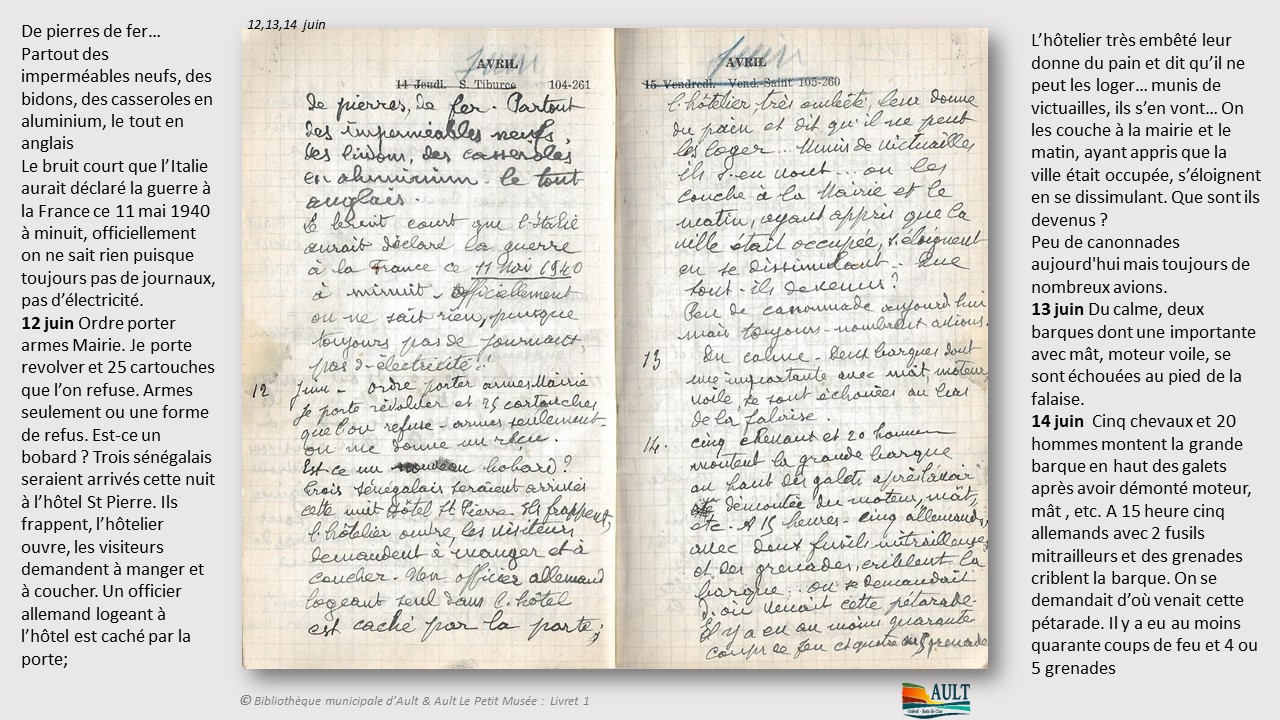 12,13,14 juin
De pierres de fer…
Partout des
imperméables neufs, des
bidons, des casseroles en
aluminium, le tout en
anglais
Le bruit court que l’Italie
aurait déclaré la guerre à
la France ce 11 mai 1940
à minuit, officiellement
on ne sait rien puisque
toujours pas de journaux,
pas d’électricité.
12 juin Ordre porter
armes Mairie. Je porte
revolver et 25 cartouches
que l’on refuse. Armes
seulement ou une forme
de refus. Est-ce un
bobard ? Trois sénégalais
seraient arrivés cette nuit
à l’hôtel St Pierre. Ils
frappent, l’hôtelier
ouvre, les visiteurs
demandent à manger et
à coucher. Un officier
allemand logeant à
l’hôtel est caché par la
porte;
juin
AVRIL
14 Jeudi. S. Tiburce 104-261
de pierres, de fer. Partout
des imperméables neufs,
des bidons, des casseroles
en aluminium. le tout
anglais.
Le bruit court que l'Italie
aurait déclaré la guerre
à la France ce 11 Mai 1940
à minuit. Officiellement
on ne sait rien, puisque
toujours pas de journaux,
pas d'électricité.
12 Juin - ordre porter armes Mairie
Je porte révolver et 25 cartouches
que l'on refuse - armes seulement -
on me donne un reçu.
Est-ce un bobard ?
Trois sénégalais seraient arrivés
cette nuit Hôtel St Pierre. Ils frappent,
l'hôtelier ouvre, les visiteurs
demandent à manger et à
coucher. Un officier allemand
logeant seul dans l'hôtel
est caché par la porte;
Juin
AVRIL
15 Vendredi. Vend.-Saint 105-260
l'hôtelier, très embêté, leur donne
du pain et dit qu'il ne peut
les loger... Munis de victuailles
ils s'en vont... on les
couche à la Mairie et le
matin, ayant appris que la
ville était occupée, s'éloignent
en se dissimulant. Que
sont-ils devenus ?
Peu de canonnade aujourd'hui
mais toujours nombreux avions.
13 Du calme - Deux barques dont
une importante avec mât, moteur,
voile, se sont échouées au bas
de la falaise.
14. cinq chevaux et 20 hommes
montent la grande barque
au haut des galets après l'avoir
démontée du moteur, mât,
etc. A 15 heures - cinq allemands,
avec deux fusils mitrailleuses
et des grenades, criblent la
barque... on se demandait
d'où venait cette pétarade.
Il y a eu au moins quarante
coups de feu et quatre ou 5 grenades
L’hôtelier très embêté leur
donne du pain et dit qu’il ne
peut les loger… munis de
victuailles, ils s’en vont… On
les couche à la mairie et le
matin, ayant appris que la
ville était occupée, s’éloignent
en se dissimulant. Que sont ils
devenus ?
Peu de canonnades
aujourd'hui mais toujours de
nombreux avions.
13 juin Du calme, deux
barques dont une importante
avec mât, moteur voile, se
sont échouées au pied de la
falaise.
14 juin Cinq chevaux et 20
hommes montent la grande
barque en haut des galets
après avoir démonté moteur,
mât , etc. A 15 heure cinq
allemands avec 2 fusils
mitrailleurs et des grenades
criblent la barque. On se
demandait d’où venait cette
pétarade. Il y a eu au moins
quarante coups de feu et 4 ou
5 grenades
© Bibliothèque municipale d’Ault & Ault Le Petit Musée : Livret 1
AULT